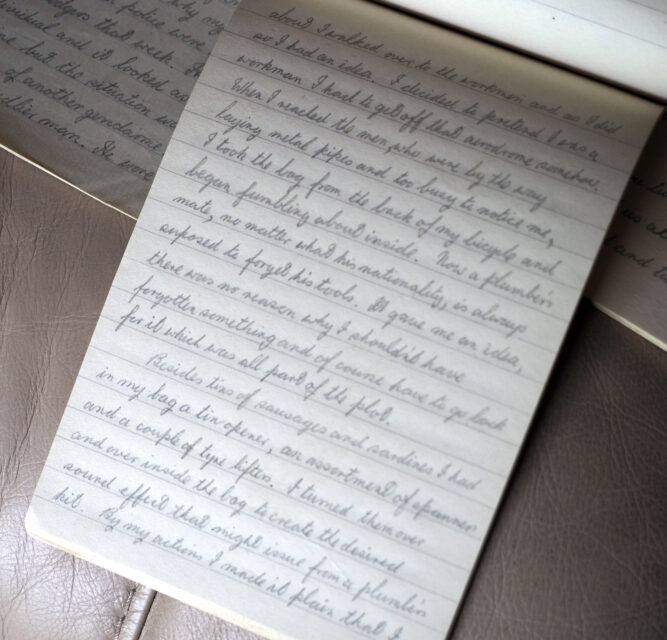 hedgers that week. It
police were
inched and it looked as
but the situation was
of another gendarme
man. He wore
about. I walked over to the workmen and as I did
so I had an idea. I decided to pretend I was a
workman. I had to get off that aerodrome somehow.
When I reached the men, who were by the way
laying metal pipes and too busy to notice me,
I took the bag from the back of my bicycle and
began fumbling about inside. Now a plumber's
mate, no matter what his nationality, is always
suposed to forget his tools. It gave me an idea,
there was no reason why I shouldn't have
forgotten something and of course have to go back
for it which was all part of the plot.
Besides tins of sausages and sardines I had
in my bag a tin opener, an assortment of spanners
and a couple of tyre lifters. I turned them over
and over inside the bag to create the desired
sound effect that might issue from a plumber's
kit. By my actions I made it plain that I
us a
and t